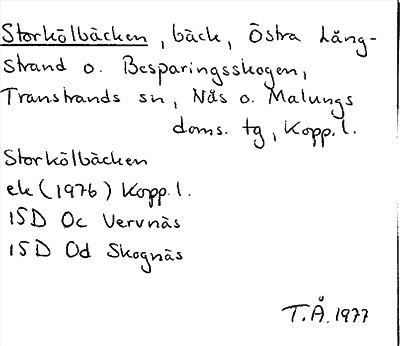 Storkölbäcken, bäck, Östra Lång-
strand o. Besparingsskogen,
Transtrands sn, Nås o. Malungs
doms. tg, Kopp. l.
Storkölbäcken
ek (1976) Kopp. l.
15D 0c Vervnäs
15D 0d Skognäs
T.Å. 1977